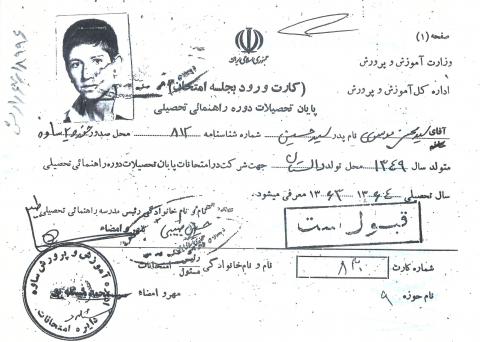 صفحه (۱)
جمهوری اسلامی ایران
وزارت آموزش و پرورش
اداره کل آموزش و پرورش
(کارت ورود بجلسه امتحان)
پایان تحصیلات دوره راهنمائی تحصیلی
آقای سید محسن موسوی نام پدر سید حسین شماره شناسنامه ۸۱۳ محل صدور ساوه
متولد سال ۱۳۴۹ محل تولد جهت شرکت در امتحانات پایان تحصیلات دوره راهنمائی تحصیلی
سال تحصیلی ۱۳۶۴ ۱۳۶۳ معرفی میشود.
نام خانوادگی رئیس مدرسه راهنمائی تحصیلی
مهر و امضاء
قبول است
شماره کارت ۸۳۰
نام و نام خانوادگی مسئول امتحانات
نام حوزه ۹
مهر و امضاء
اداره آموزش و پرورش ساوه
دایره امتحانات